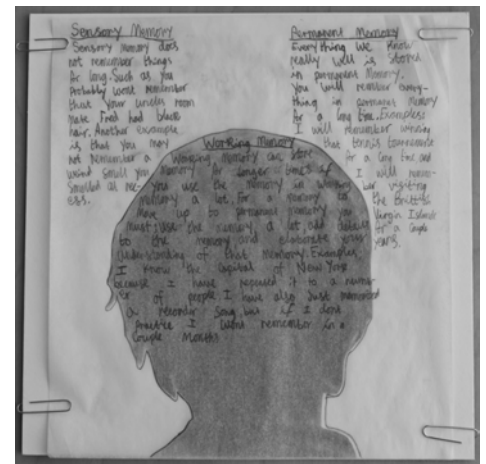 Sensory Memory
Sensory memory does
not remember things
for long. Such as you
Probably wont remember
that your uncles room
mate Fred had black
hair. Another example
is that you may
not remember a
weird smell you
smelled at rec-
ess.
Working Memory
Working Memory can store
memory for longer times if
you use the memory in working
memory a lot. For a memory to
Move up to permanent memory you
must use the memory, a lot, add details
to the memory, and elaborate your
understanding of that memory. Examples:
I know the capital of New York
because I have repeated it to a numb-
er of people I have also Just memorized
a recorder song, but if I dont
Practice I wont remember in a
Couple Months
Permanent Memory
Everything we know
really well is stored
in permanent Memory.
You will remember every-
thing in permanent memory
for a long time. Examples:
I will remember winning
that tennis tournament
for a long time and
I will remem-
ber visiting
the Brittish
Virgin Islands
for a Couple
years.